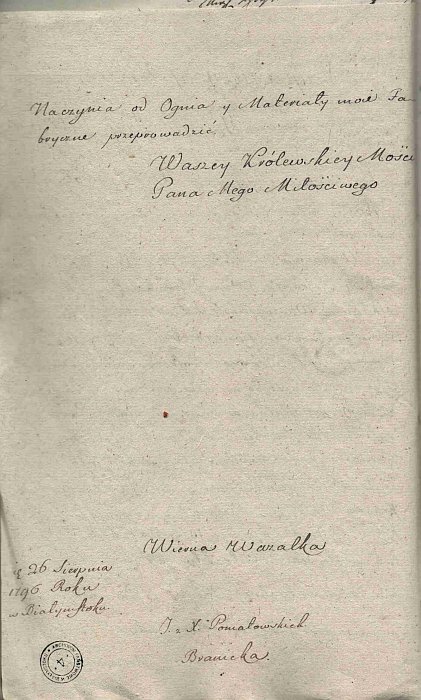 Naczynia od Ognia y Materiały moie Fa-
bryczne przeprowadzić
Waszey Królewskiey Mości
Pana Mego Miłościwego
Wierna Wazalka
26 Sierpnia
1796 Roku
w Białymstoku
I. z X. Poniatowskich
Branicka.